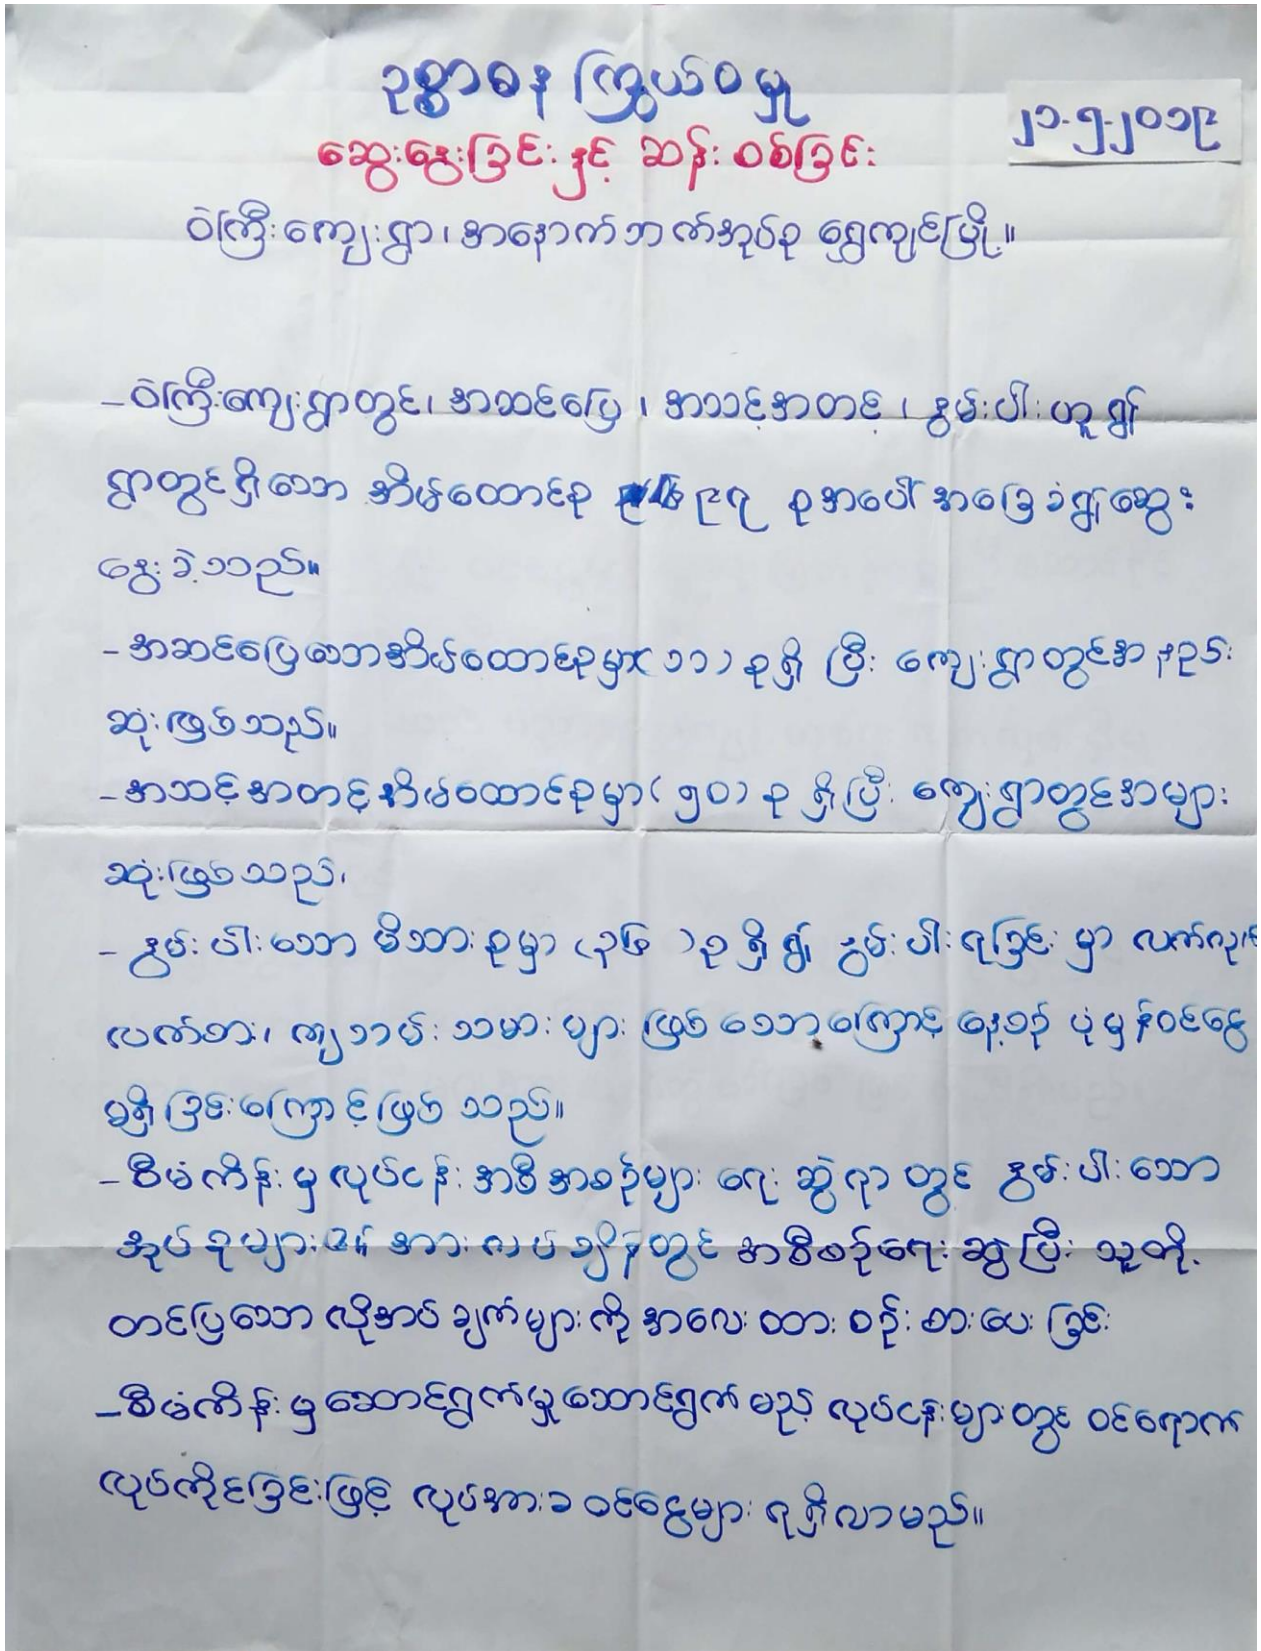 ဥစ္စာဓန ကြွယ်ဝမှု
၂၁-၅-၂၀၁၉
ဆွေးနွေးခြင်းနှင့် ဆန်းစစ်ခြင်း
ဝဲကြီးကျေးရွာ၊ အနောက်ဘက်အုပ်စု ရွှေကျင်မြို့။
- ဝဲကြီးကျေးရွာတွင်၊ အဆင်ပြေ ၊ အသင့်အတင့် ၊ နွမ်းပါး ဟူ၍
ရွာတွင်ရှိသော အိမ်ထောင်စု ၉၇ စုအပေါ် အခြေခံ၍ ဆွေး
နွေးခဲ့သည်။
- အဆင်ပြေသောအိမ်ထောင်စုမှာ (၁၁) စုရှိ ပြီး ကျေးရွာတွင်အနည်း
ဆုံးဖြစ်သည်။
- အသင့်အတင့်အိမ်ထောင်စုမှာ (၅၀) စု ရှိပြီး ကျေးရွာတွင်အများ
ဆုံးဖြစ်သည်၊
- နွမ်းပါးသော မိသားစုမှာ (၃၆ ) စု ရှိ၍ နွမ်းပါးရခြင်းမှာ လက်လုပ်
လက်စား၊ ကျဘမ်းသမားများ ဖြစ်သောကြောင့် နေ့စဉ် ပုံမှန်ဝင်ငွေ
မရှိခြင်းကြောင့်ဖြစ်သည်။
- စီမံကိန်းမှ လုပ်ငန်းအစီအစဉ်များ ရေးဆွဲရာတွင် နွမ်းပါးသော
အုပ်စုများ၏ အားလပ်ချိန်တွင် အစီစဉ်ရေးဆွဲပြီး သူတို့
တင်ပြသော လိုအပ်ချက်များကို အလေးထား စဉ်းစားပေးခြင်း
- စီမံကိန်းမှ ဆောင်ရွက်မှုဆောင်ရွက်မည့် လုပ်ငန်းများတွင် ဝင်ရောက်
လုပ်ကိုင်ခြင်းဖြင့် လုပ်အားခ ဝင်ငွေများ ရရှိလာမည်။